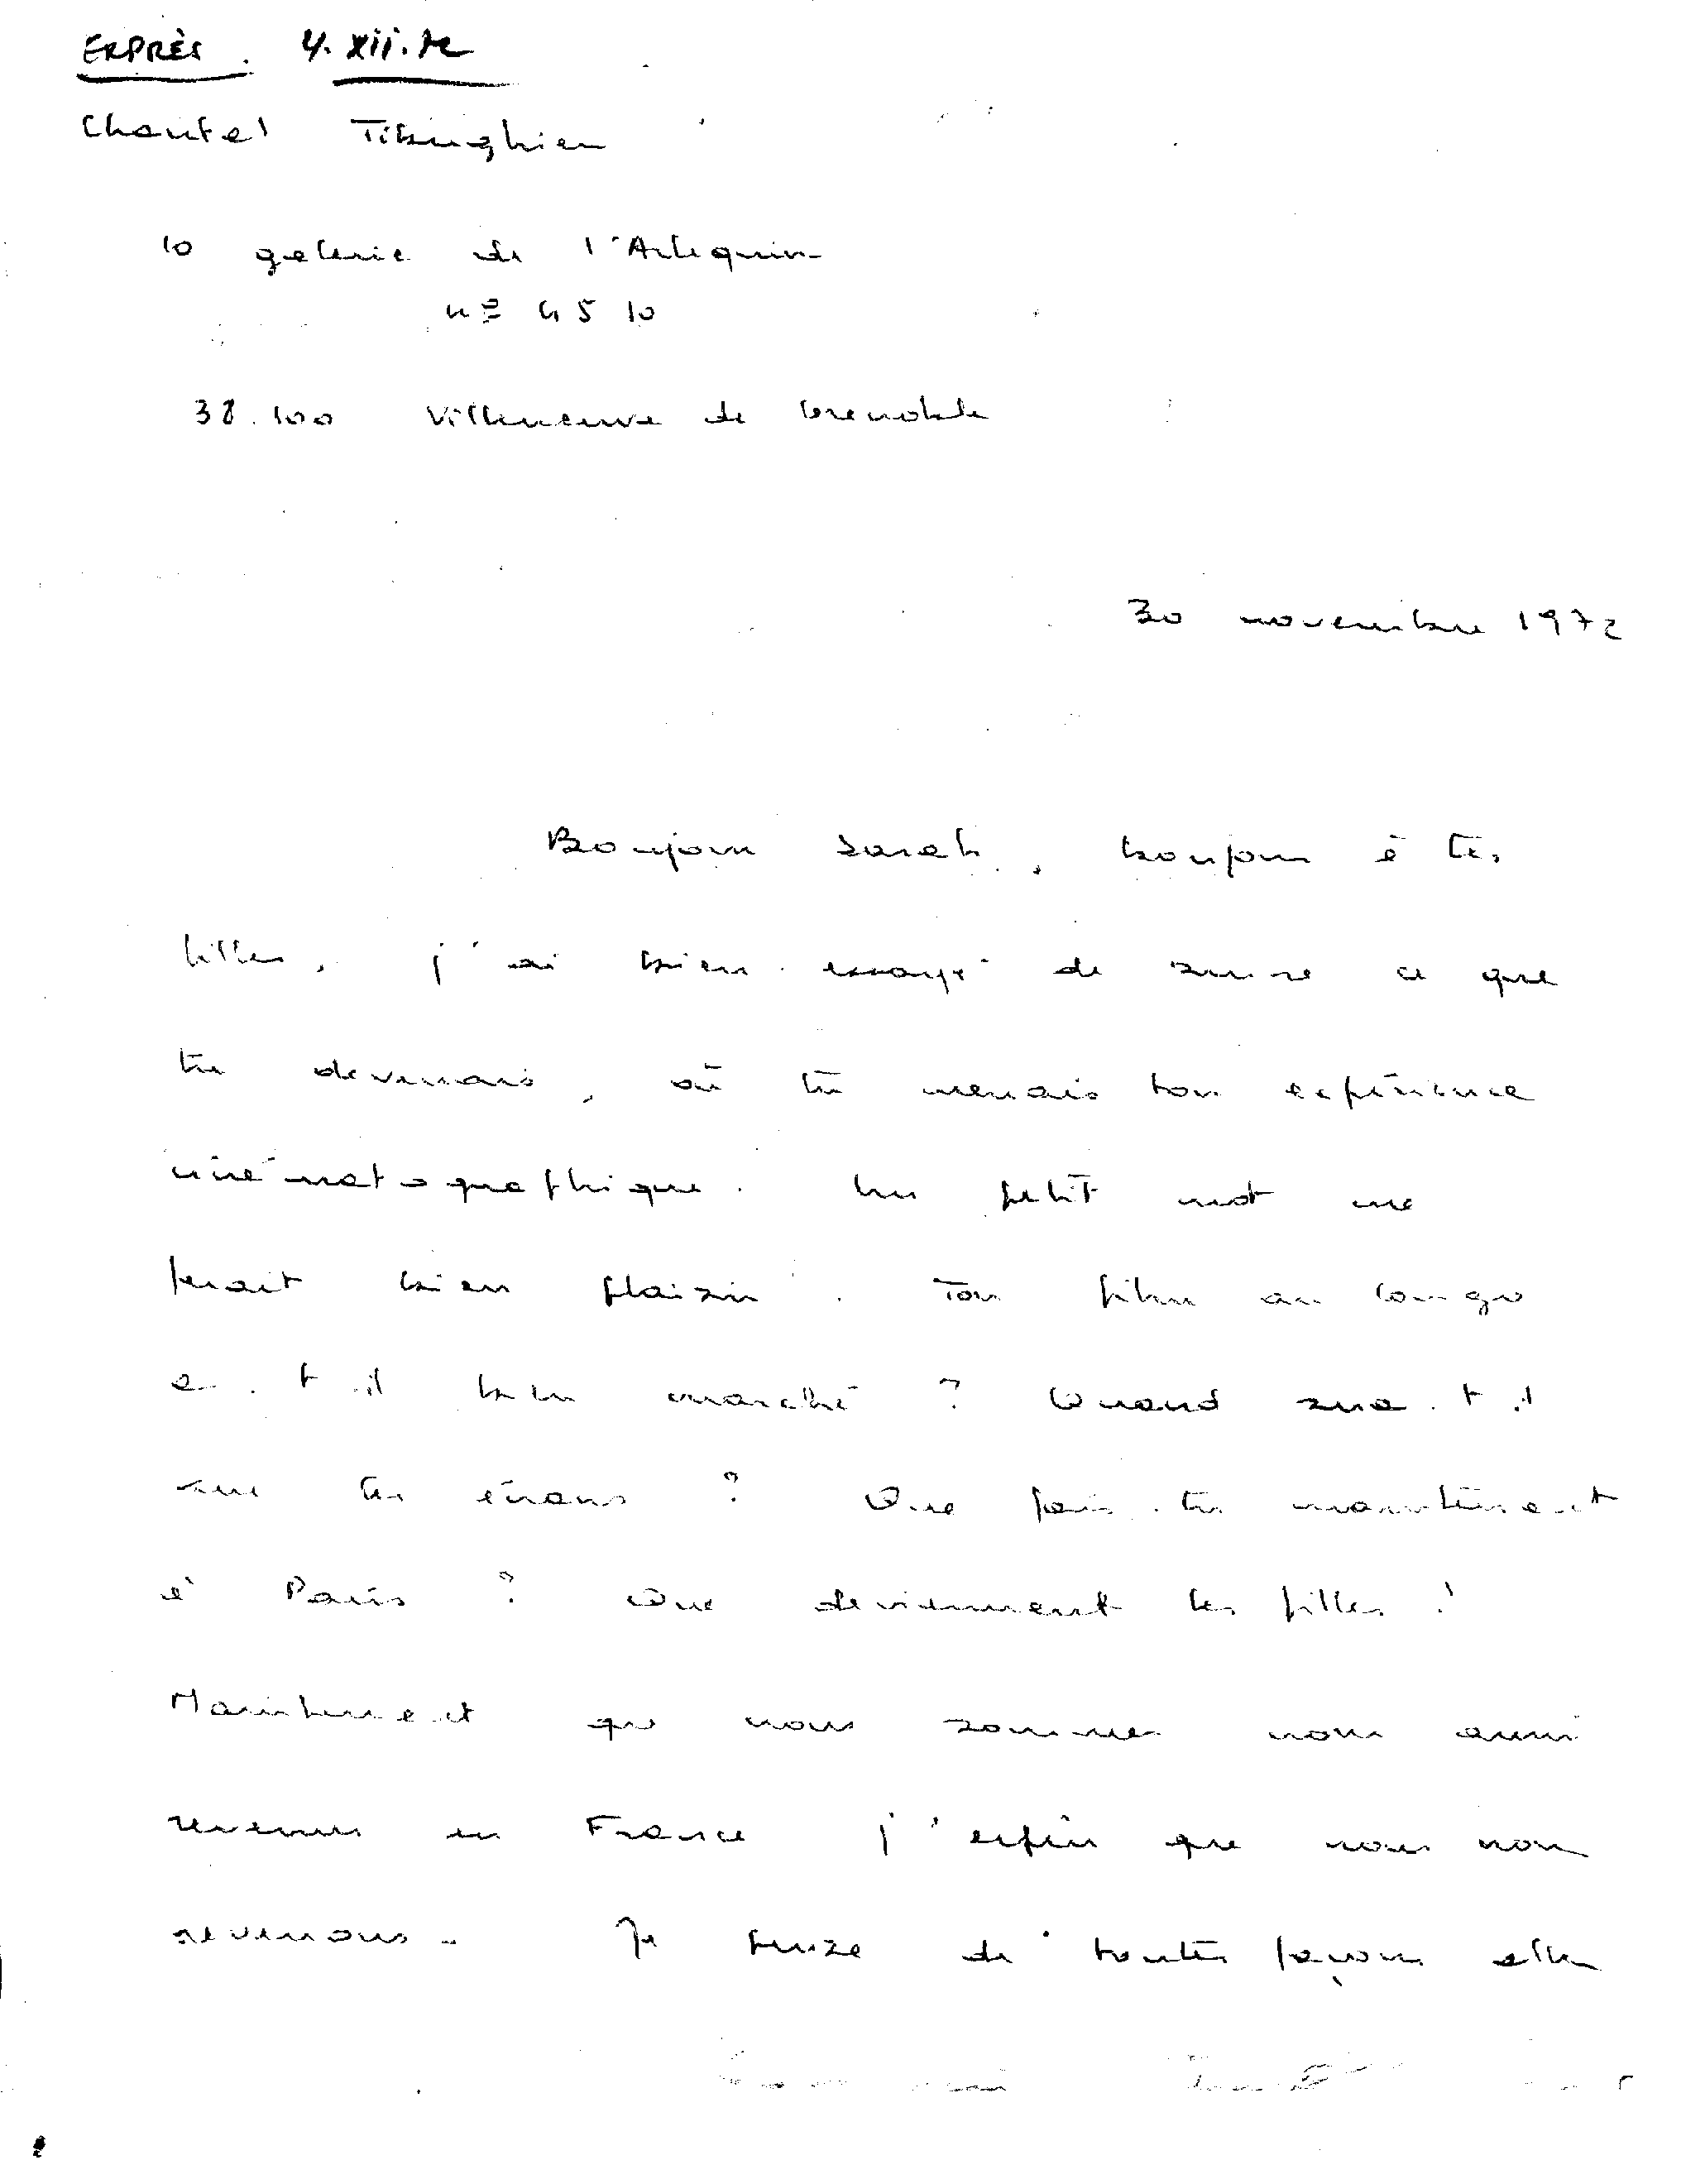 EXPRÈS. 4.XII.72
Chantal Tiberghien
10 galerie de l'Arlequin
n° 4510
38.100 Villeneuve de Grenoble
30 novembre 1972
Bonjour Sarah, bonjour à tes
filles, j'ai bien essayé de suivre ce que
tu devenais, où tu menais ton expérience
cinématographique. Un petit mot me
ferait bien plaisir. Ton film au Congo
a-t-il bien marché ? Quand sera-t-il
sur les écrans ? Que fais-tu maintenant
à Paris ? Que deviennent les filles ?
Maintenant que nous sommes nous aussi
revenus en France j'espère que nous nous
reverrons. Je pense de toutes façons aller